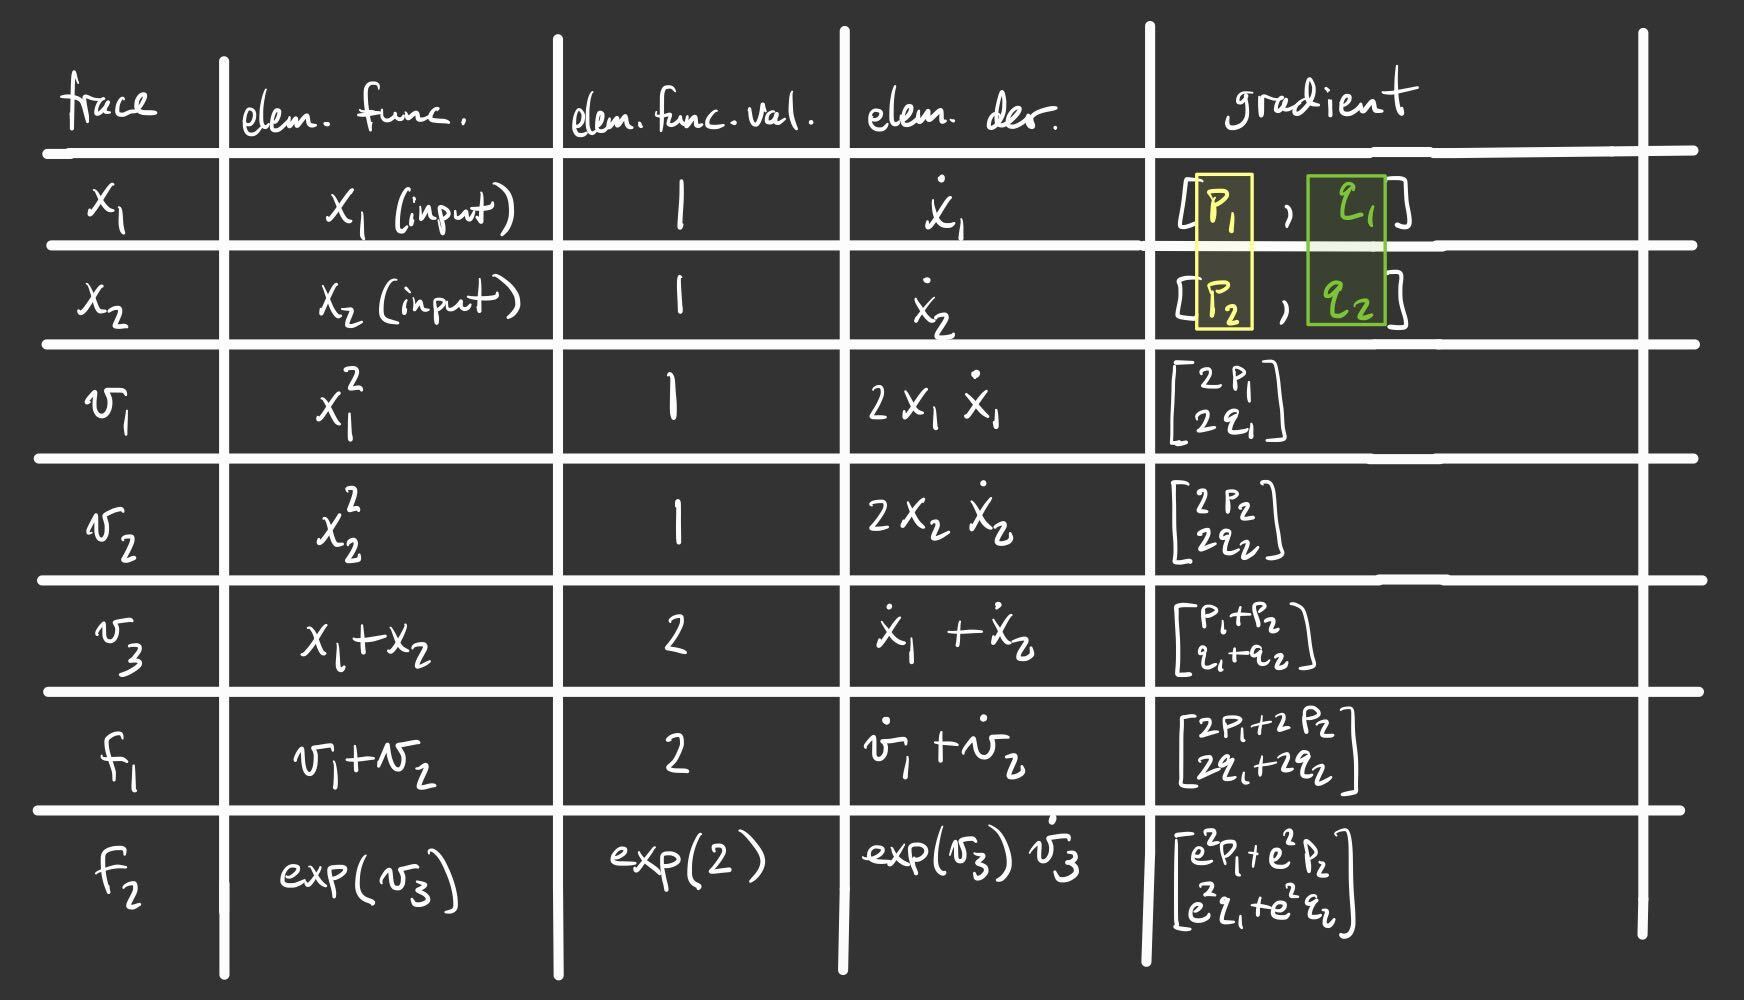 trace elem. func. elem. func. val. elem. der. gradient
x₁ x₁ (input) 1 ẋ₁ [P₁ , q₁]
x₂ x₂ (input) 1 ẋ₂ [P₂ , q₂]
v₁ x₁² 1 2 x₁ ẋ₁ [2 P₁
2 q₁]
v₂ x₂² 1 2 x₂ ẋ₂ [2 P₂
2q₂]
v₃ x₁+x₂ 2 ẋ₁ + ẋ₂ [P₁+P₂
q₁+q₂]
f₁ v₁+v₂ 2 v̇₁ + v̇₂ [2P₁+2P₂
2q₁+2q₂]
f₂ exp(v₃) exp(2) exp(v₃) v̇₃ [e²P₁+e²P₂
e²q₁+e²q₂]